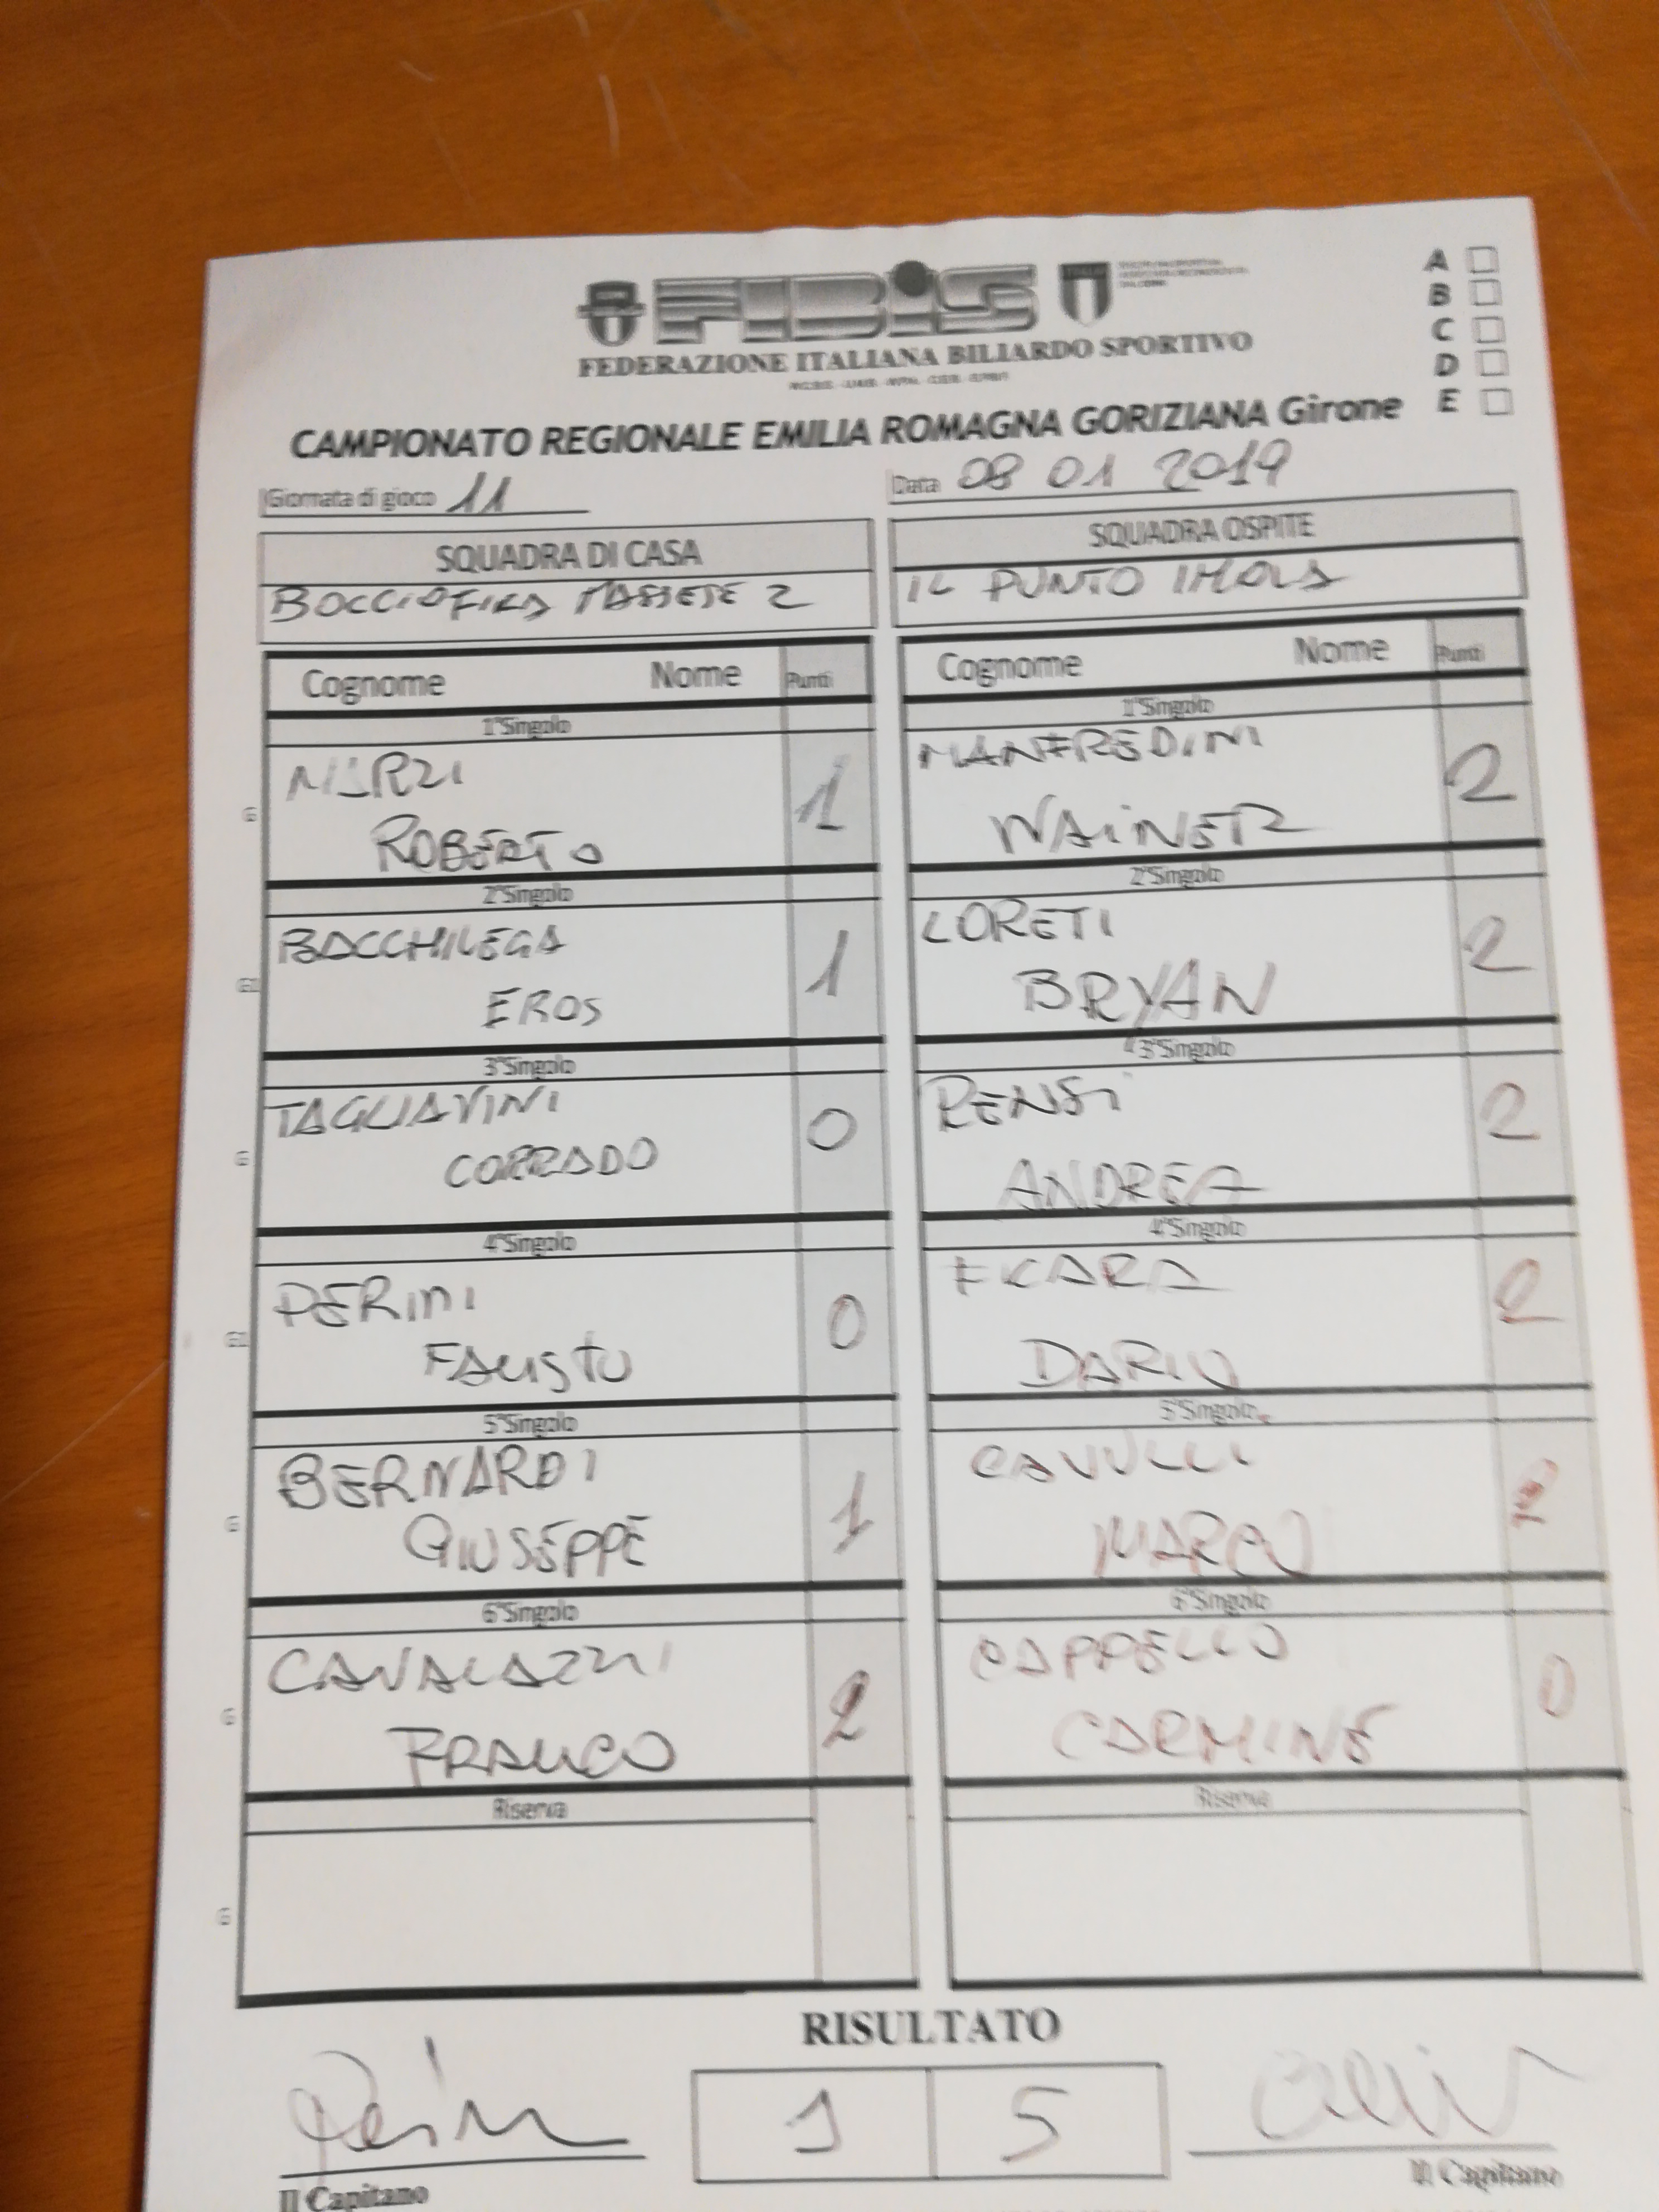 FIBiS
FEDERAZIONE ITALIANA BILIARDO SPORTIVO
A
B
C
D
E
CAMPIONATO REGIONALE EMILIA ROMAGNA GORIZIANA Girone
Giornata di gioco 11
Data 08 01 2019
SQUADRA DI CASA
SQUADRA OSPITE
BOCCIOFILA MASSESE 2
IL PUNTO IMOLA
Cognome Nome Punti
Cognome Nome Punti
1°Singolo
1°Singolo
ROBERTO 1
MANFREDINI
WAINER 2
2°Singolo
2°Singolo
BACCHILEGA
EROS 1
LORETI
BRYAN 2
3°Singolo
3°Singolo
TAGLIAVINI
CORRADO 0
RENSI
ANDREA 2
4°Singolo
4°Singolo
PERINI
FAUSTO 0
FICARA
DARIO 2
5°Singolo
5°Singolo
BERNARDI
GIUSEPPE 1
CAVULLI
MARCO 2
6°Singolo
6°Singolo
CAVALAZZI
FRANCO 2
CAPPELLO
CARMINE 0
Riserva
Riserva
RISULTATO
1 5
Il Capitano
Il Capitano